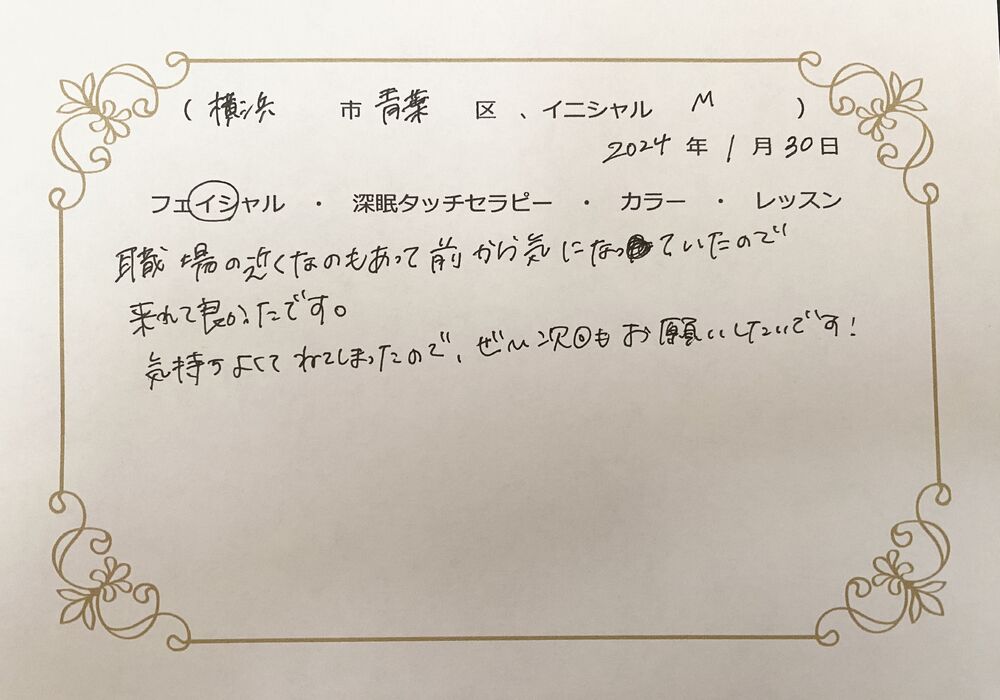 （ 横浜 市 青葉 区 、イニシャル M ）
2024 年 1 月 30 日
フェイシャル ・ 深眠タッチセラピー ・ カラー ・ レッスン
職場の近くなのもあって前から気になっていたので
来れて良かったです。
気持ちよくてねてしまったので、ぜひ次回もお願いしたいです!